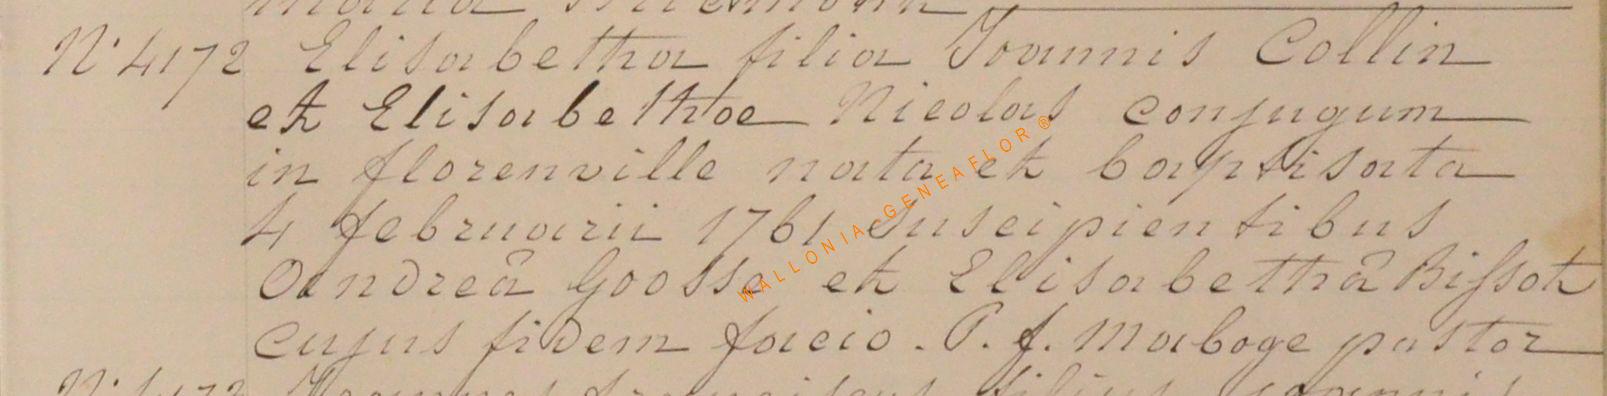 N° 4172 Elisabetha filia Joannis Collin
et Elisabethoe Nicolas conjugum
in florenville nata et baptisata
4 februarii 1761 suscipientibus
andreâ Goosse et Elisabethâ Bissot
cujus fidem facio. P. f. Maboge pastor
WALLONIA-GENEAFLOR ®